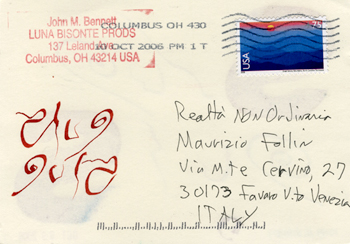 John M. Bennett
LUNA BISONTE PRODS
137 Leland Ave.
Columbus, OH 43214 USA
COLUMBUS OH 430
OCT 2006 PM 1 T
USA
Realtà Non Ordinaria
Maurizio Follin
Via M.te Cervino, 27
30173 Favaro V.to Venezia
ITALY